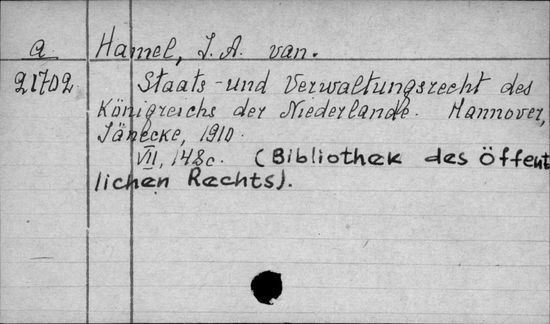 a. Hamel, J. A. van.
21702 Staats- und Verwaltungsrecht des
Königreichs der Niederlande. Hannover,
Jänecke, 1910.
VII, 148c. (Bibliothek des Öffent
lichen Rechts).